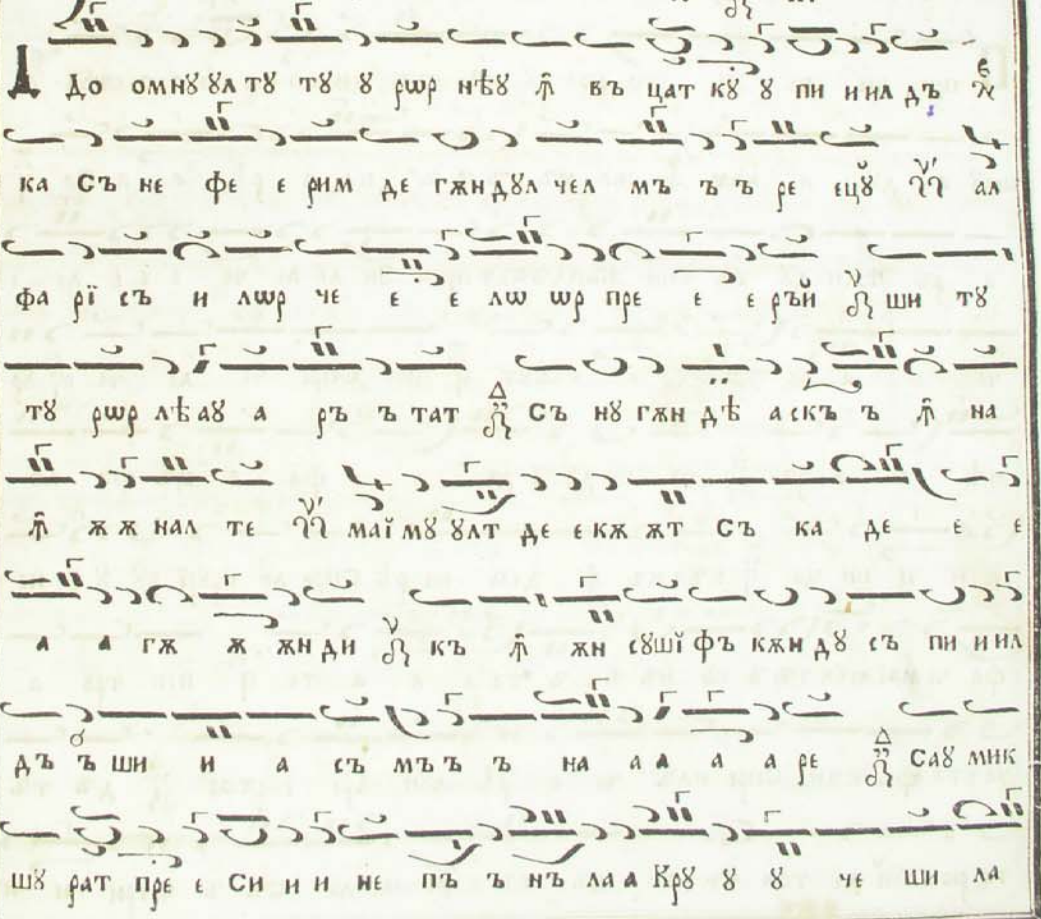 До омнꙋ ꙋл тꙋ тꙋ ꙋ рѡр нѣꙋ ꙟ҃ въ цат кꙋ ꙋ пи и ил дъ
ка Съ не фе е рим де гѫн дꙋл чел мъ ъ ъ ре ецꙋ ал
фа рї съ и лѡр че е е лѡ ѡр пре е е ръй ши тꙋ
тꙋ рѡр лѣ аꙋ а ръ ъ тат Съ нꙋ гѫн дѣ аскъ ъ ꙟ҃ на
ꙟ҃ ѫ ѫ нал те маї мꙋ ꙋлт де е кѫ ѫт Съ ка де е е
а а гѫ ѫ ѫн ди къ ꙟ҃ ѫн сꙋшї фъ кѫн дꙋ съ пи и ил
дъ ъ ши и а съ мъ ъ ъ на а а а а ре Саꙋ мик
шꙋ рат пре е Си и и не пъ ъ нъ ла а Крꙋ ꙋ ꙋ че ши ла